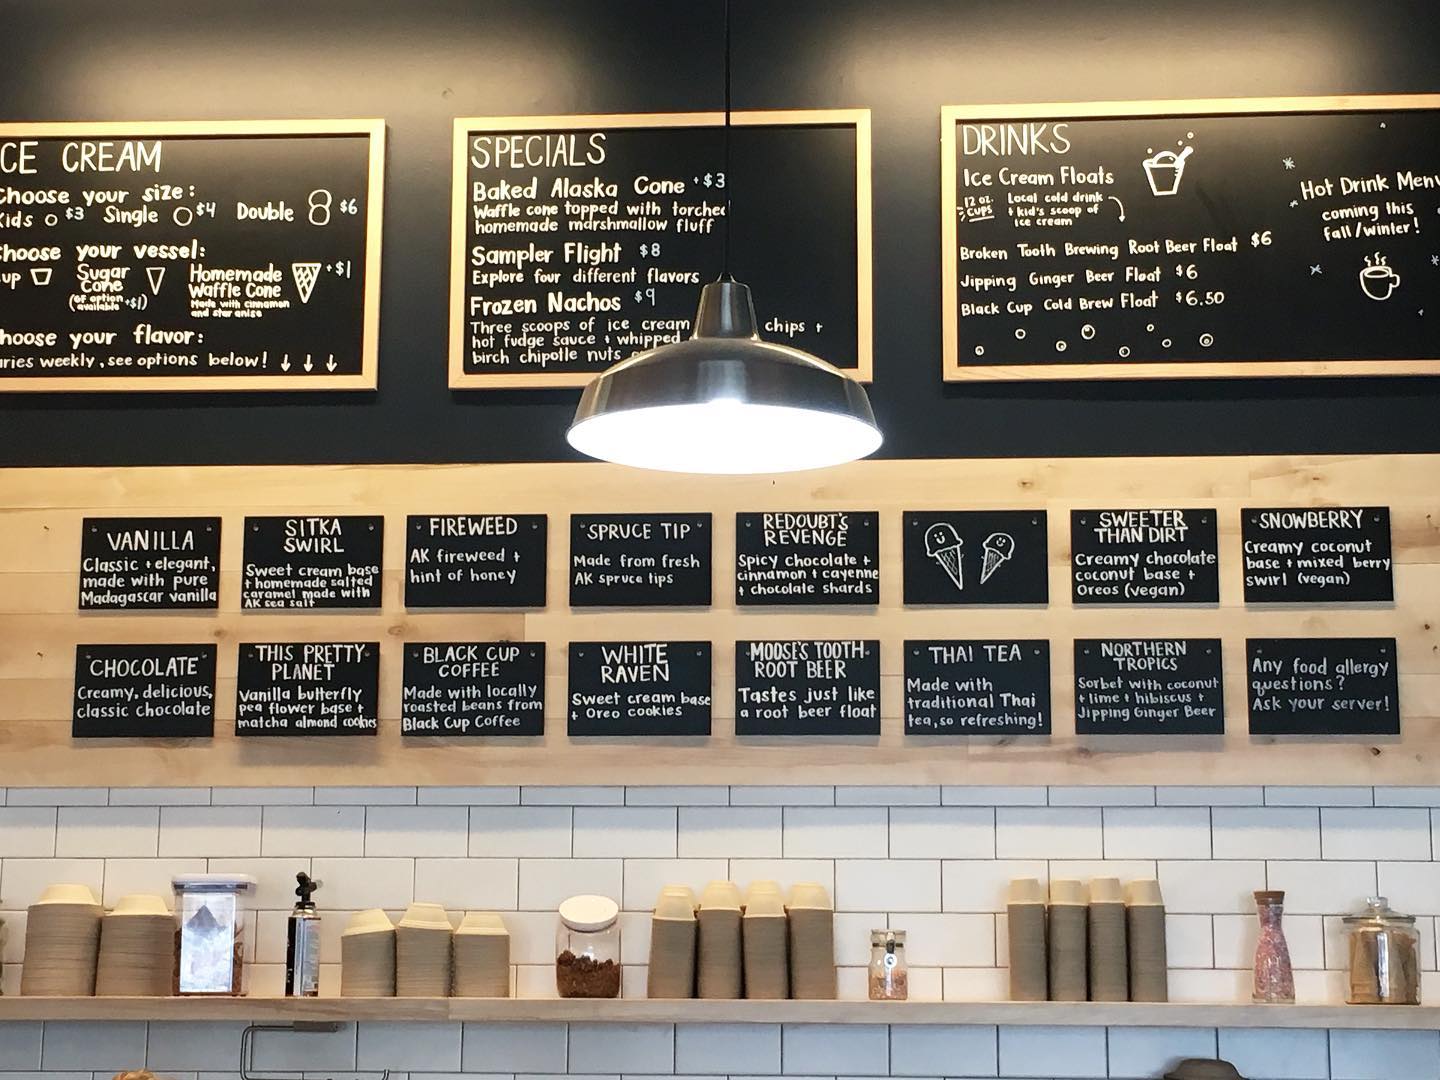 CE CREAM
Choose your size:
Kids $3 Single $4 Double $6
Choose your vessel:
up Sugar Cone (GF option available +$1) Homemade Waffle Cone +$1
Made with cinnamon
and star anise
hoose your flavor:
aries weekly, see options below! ↓ ↓ ↓
SPECIALS
Baked Alaska Cone +$3
Waffle cone topped with torched
homemade marshmallow fluff
Sampler Flight $8
Explore four different flavors
Frozen Nachos $9
Three scoops of ice cream chips +
hot fudge sauce + whipped
birch chipotle nuts
DRINKS
Ice Cream Floats
12 oz. cups
local cold drink
+ kid's scoop of
ice cream
Broken Tooth Brewing Root Beer Float $6
Jipping Ginger Beer Float $6
Black Cup Cold Brew Float $6.50
Hot Drink Menu
coming this
fall/winter!
VANILLA
Classic + elegant,
made with pure
Madagascar vanilla
SITKA
SWIRL
Sweet cream base
+ homemade salted
caramel made with
AK sea salt
FIREWEED
AK fireweed +
hint of honey
SPRUCE TIP
Made from fresh
AK spruce tips
REDOUBT'S
REVENGE
Spicy chocolate +
cinnamon + cayenne
+ chocolate shards
SWEETER
THAN DIRT
Creamy chocolate
coconut base +
Oreos (vegan)
SNOWBERRY
Creamy coconut
base + mixed berry
swirl (vegan)
CHOCOLATE
Creamy, delicious,
classic chocolate
THIS PRETTY
PLANET
Vanilla butterfly
pea flower base +
matcha almond cookies
BLACK CUP
COFFEE
Made with locally
roasted beans from
Black Cup Coffee
WHITE
RAVEN
Sweet cream base
+ Oreo cookies
MOOSE'S TOOTH
ROOT BEER
Tastes just like
a root beer float
THAI TEA
Made with
traditional Thai
tea, so refreshing!
NORTHERN
TROPICS
Sorbet with coconut
+ lime + hibiscus +
Jipping Ginger Beer
Any food allergy
questions?
Ask your server!